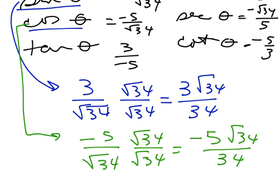 √34
cos θ = -5/√34 sec θ = -√34/5
tan θ 3/-5 cot θ = -5/3
3/√34 √34/√34 = 3√34/34
-5/√34 √34/√34 = -5√34/34